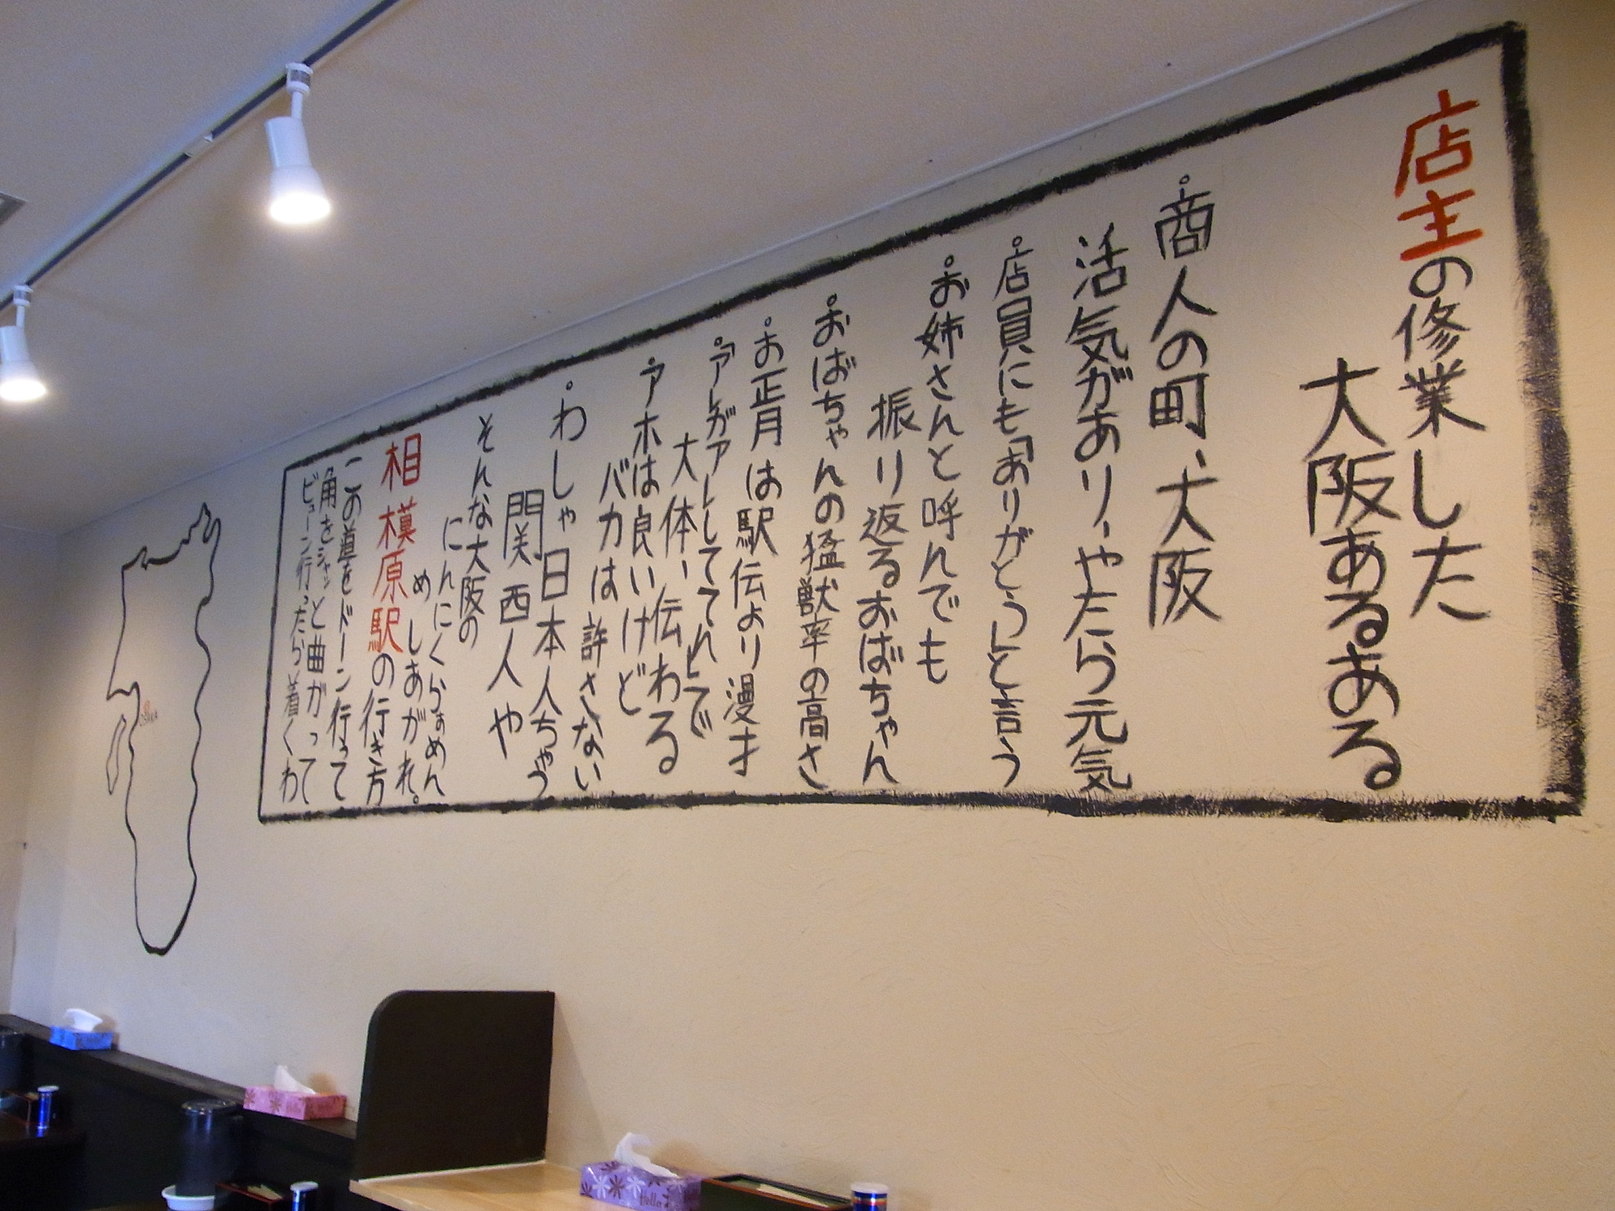 店主の修業した
大阪あるある
。商人の町、大阪
活気があり、やたら元気
。店員にも「ありがとう」と言う
。お姉さんと呼んでも
振り返るおばちゃん
。おばちゃんの猛獣率の高さ
。お正月は駅伝より漫才
。「アレがアレしててれ」で
大体、伝わる
。アホは良いけど
バカは許さない
。わしゃ日本人ちゃう
関西人や
そんな大阪の
にんにくらぁめん
めしあがれ。
相模原駅の行き方
この道をドーン行って
角をシャッと曲がって
ビューン行ったら着くわ